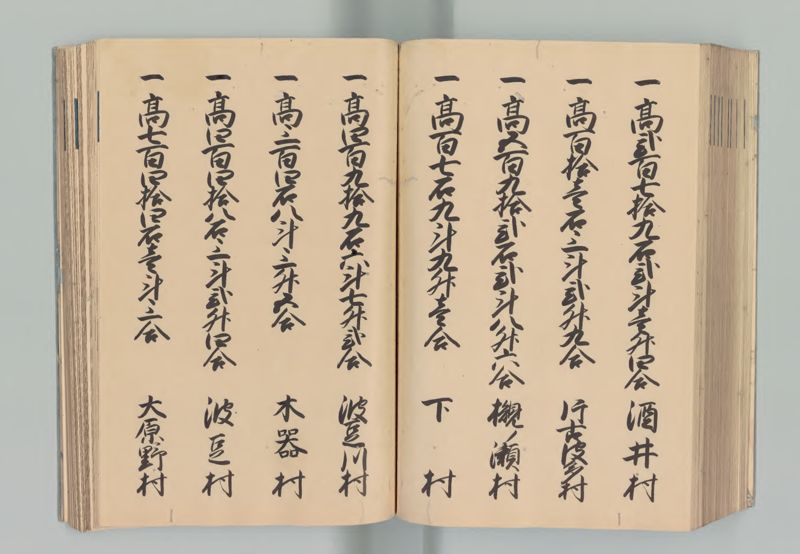 一高弐百七拾九石弐斗壱升四合 酒井村
一高百拾壱石三斗弐升九合 村
一高五百九拾弐石弐斗八升六合 櫬ノ瀬村
一高百七石九斗九升壱合 下村
一高四百九拾九石六斗七升弐合 波豆川村
一高三百四石八斗三升五合 木器村
一高四百四拾八石三斗弐升四合 波豆村
一高七百四拾四石壱斗三合 大原野村